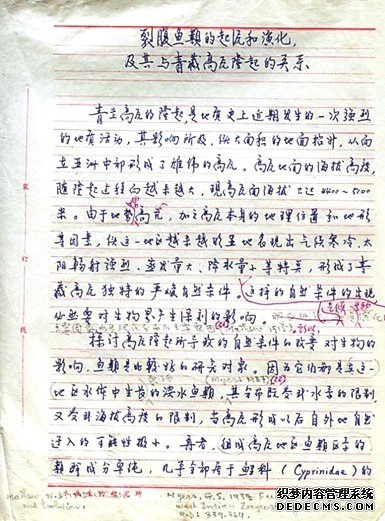 裂腹鱼类的起源和演化,
及其与青藏高原隆起的关系
青藏高原的隆起是地质史上近期发生的一次强烈
的地质活动,其影响所及,使大面积的地面抬升,从而
在亚洲中部形成了雄伟的高原。高原地面的海拔高度,
随隆起过程向越来越大,现高原面海拔已达4400~5000
米。由于地势高亢,加之高原本身的地理位置和地形
等因素,使这一地区越来越明显地表现出气候寒冷、太
阳辐射强烈、蒸发量大、降水量小等特点,形成了青
藏高原独特的严峻自然条件。这样的自然条件的出现
必然要对生物界产生深刻的影响。
探讨高原隆起所导致的自然条件的改变对生物的
影响,鱼类是较好的研究对象。因为它们都是在这一
地区水体中生长的淡水鱼类,其分布既受水系的限制
又受海拔高度的限制,当高原形成以后自外地自然
进入的可能性极小。再者,组成高原地区鱼类区系的
类群成分单纯,几乎全部属于鲤科(Cyprinidae)的
Myers, G.S. 1938
and Evolution.
装 订 线